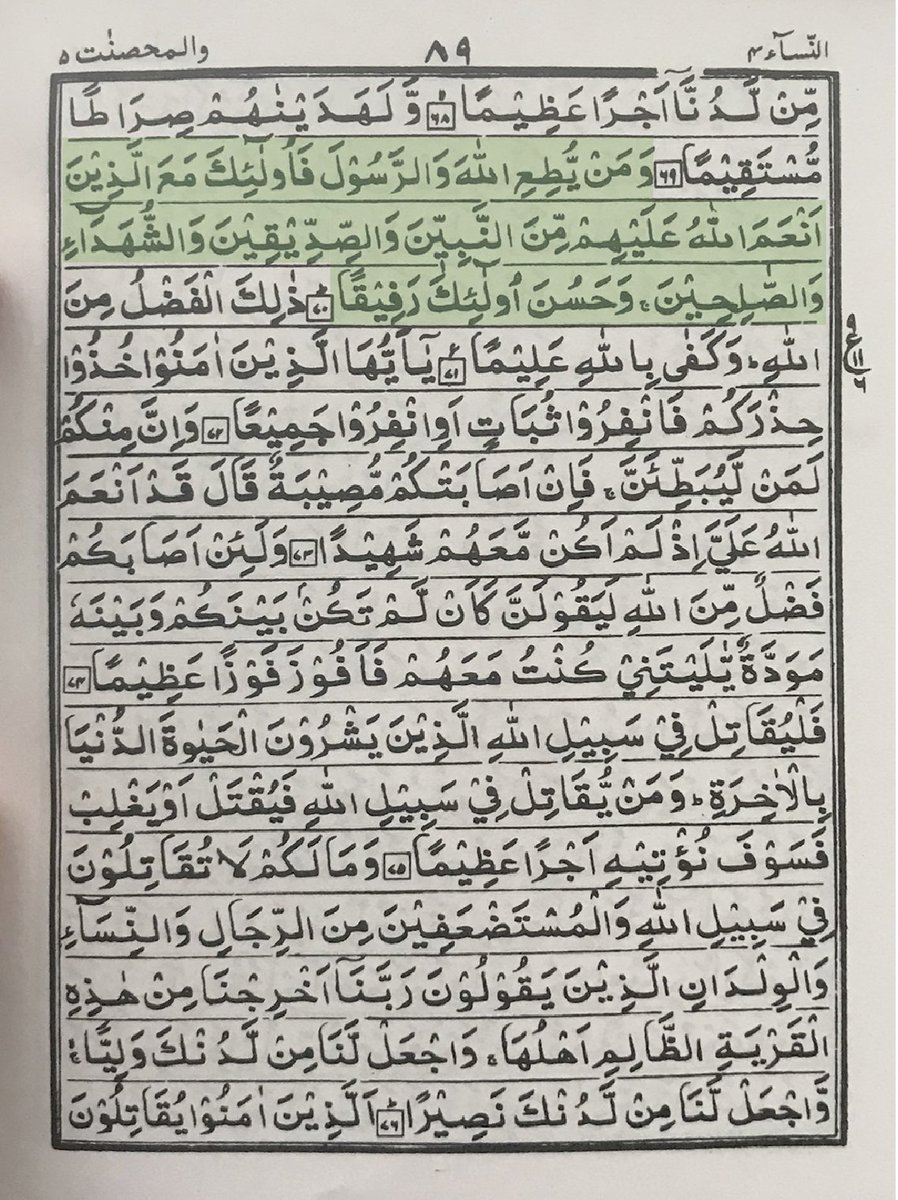 النّسآء ۴ ۸۹ والمحصنٰت ۵
مِّنْ لَّدُنَّاۤ اَجْرًا عَظِيْمًا ۶۸ وَّ لَهَدَيْنٰهُمْ صِرَاطًا
مُّسْتَقِيْمًا ۶۹ وَمَنْ يُّطِعِ اللّٰهَ وَالرَّسُوْلَ فَاُولٰٓئِكَ مَعَ الَّذِيْنَ
اَنْعَمَ اللّٰهُ عَلَيْهِمْ مِّنَ النَّبِيّٖنَ وَالصِّدِّيْقِيْنَ وَالشُّهَدَآءِ
وَالصّٰلِحِيْنَ ۚ وَحَسُنَ اُولٰٓئِكَ رَفِيْقًا ۷۰ ذٰلِكَ الْفَضْلُ مِنَ
اللّٰهِ ؕ وَكَفٰى بِاللّٰهِ عَلِيْمًا ۷۱ يٰۤاَيُّهَا الَّذِيْنَ اٰمَنُوْا خُذُوْا
حِذْرَكُمْ فَانْفِرُوْا ثُبَاتٍ اَوِ انْفِرُوْا جَمِيْعًا ۷۲ وَاِنَّ مِنْكُمْ
لَمَنْ لَّيُبَطِّئَنَّ ۚ فَاِنْ اَصَابَتْكُمْ مُّصِيْبَةٌ قَالَ قَدْ اَنْعَمَ
اللّٰهُ عَلَيَّ اِذْ لَمْ اَكُنْ مَّعَهُمْ شَهِيْدًا ۷۳ وَلَئِنْ اَصَابَكُمْ
فَضْلٌ مِّنَ اللّٰهِ لَيَقُوْلَنَّ كَاَنْ لَّمْ تَكُنْۢ بَيْنَكُمْ وَبَيْنَهٗ
مَوَدَّةٌ يّٰلَيْتَنِيْ كُنْتُ مَعَهُمْ فَاَفُوْزَ فَوْزًا عَظِيْمًا ۷۴
فَلْيُقَاتِلْ فِيْ سَبِيْلِ اللّٰهِ الَّذِيْنَ يَشْرُوْنَ الْحَيٰوةَ الدُّنْيَا
بِالْاٰخِرَةِ ؕ وَمَنْ يُّقَاتِلْ فِيْ سَبِيْلِ اللّٰهِ فَيُقْتَلْ اَوْ يَغْلِبْ
فَسَوْفَ نُؤْتِيْهِ اَجْرًا عَظِيْمًا ۷۵ وَمَا لَكُمْ لَا تُقَاتِلُوْنَ
فِيْ سَبِيْلِ اللّٰهِ وَالْمُسْتَضْعَفِيْنَ مِنَ الرِّجَالِ وَالنِّسَآءِ
وَالْوِلْدَانِ الَّذِيْنَ يَقُوْلُوْنَ رَبَّنَاۤ اَخْرِجْنَا مِنْ هٰذِهِ
الْقَرْيَةِ الظَّالِمِ اَهْلُهَا ۚ وَاجْعَلْ لَّنَا مِنْ لَّدُنْكَ وَلِيًّا ۙ
وَّاجْعَلْ لَّنَا مِنْ لَّدُنْكَ نَصِيْرًا ۷۶ اَلَّذِيْنَ اٰمَنُوْا يُقَاتِلُوْنَ